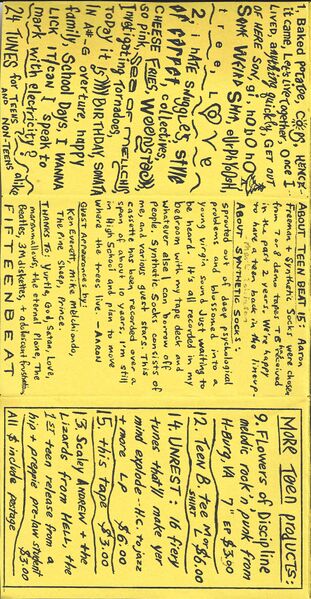 1. Baked potatoe, Carps, Hence
it came, Let's live together, once I
lived, anything quickly, Get out
of here son, gi, no Do no
Some weird slim, ouhh
r e e, L O V e
2. i hate snuggles, still
at carpal, collectives,
so pink, sea of melchi
Investigating Tornadoes,
CHEESE FRIES, WEEDSTOOL,
Today it is my BIRTHDAY, SONATA
IN A#-G overture, happy
family, School Days, I WANNA
LICK IT/CAN I speak to
mark with electricity?
24 TUNES for TEENS alike
AND NON-TEENS
ABOUT TEEN BEAT 15: Aaron
Freeman + Synthetic Socks were chosen
from 7 or 8 demo tapes TB received
in the past 2 years. We're happy
to have him near us in the lineup.
ABOUT SYNTHETIC SOCKS:
sprouted out of deep psychological
problems and blossomed into a
young virgin sound Just waiting to
be heard. It's all recorded in my
bedroom with my tape deck and
whatever else I can borrow off
people. Synthetic Socks consists of
me and various guest stars. This
cassette has been recorded over a
span of about 10 years. I'm still
in High School and plan to move
where the trees live. —AARON
Guest appearances by:
Ken Everett, Mike Melchiondo,
The Pine, Sheep, Prince.
THANKS TO: Yurtle, God, Satan, Love,
marshmallows, the eternal Plane, The
Beatles, 3M diskettes, + adolescent frustration,
FIFTEENBEAT
MORE TEEN PRODUCTS:
9. Flowers of Discipline
melodic rock'n punk from
H-Burg, VA 7" EP $3.00
12. TEEN B. tee M or L $6.00
SHIRT
14. UNREST: 16 fiery
tunes that'll make yer
mind explode - H.C. to jazz
+ more LP $6.00
15. this tape $3.00
13. Scaley ANDREW + the
Lizards from HELL, the
1ST teen release from a
hip + preppie pre-law student
$3.00
All $ include postage